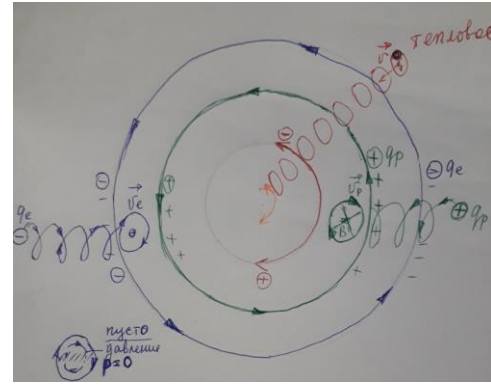 тепловое
v
⊖
⊕ qp
⊖ qe
ve
vp
qe
⊖
⊕ qp
B
⊕
⊖
⊕
пусто
давление
p=0